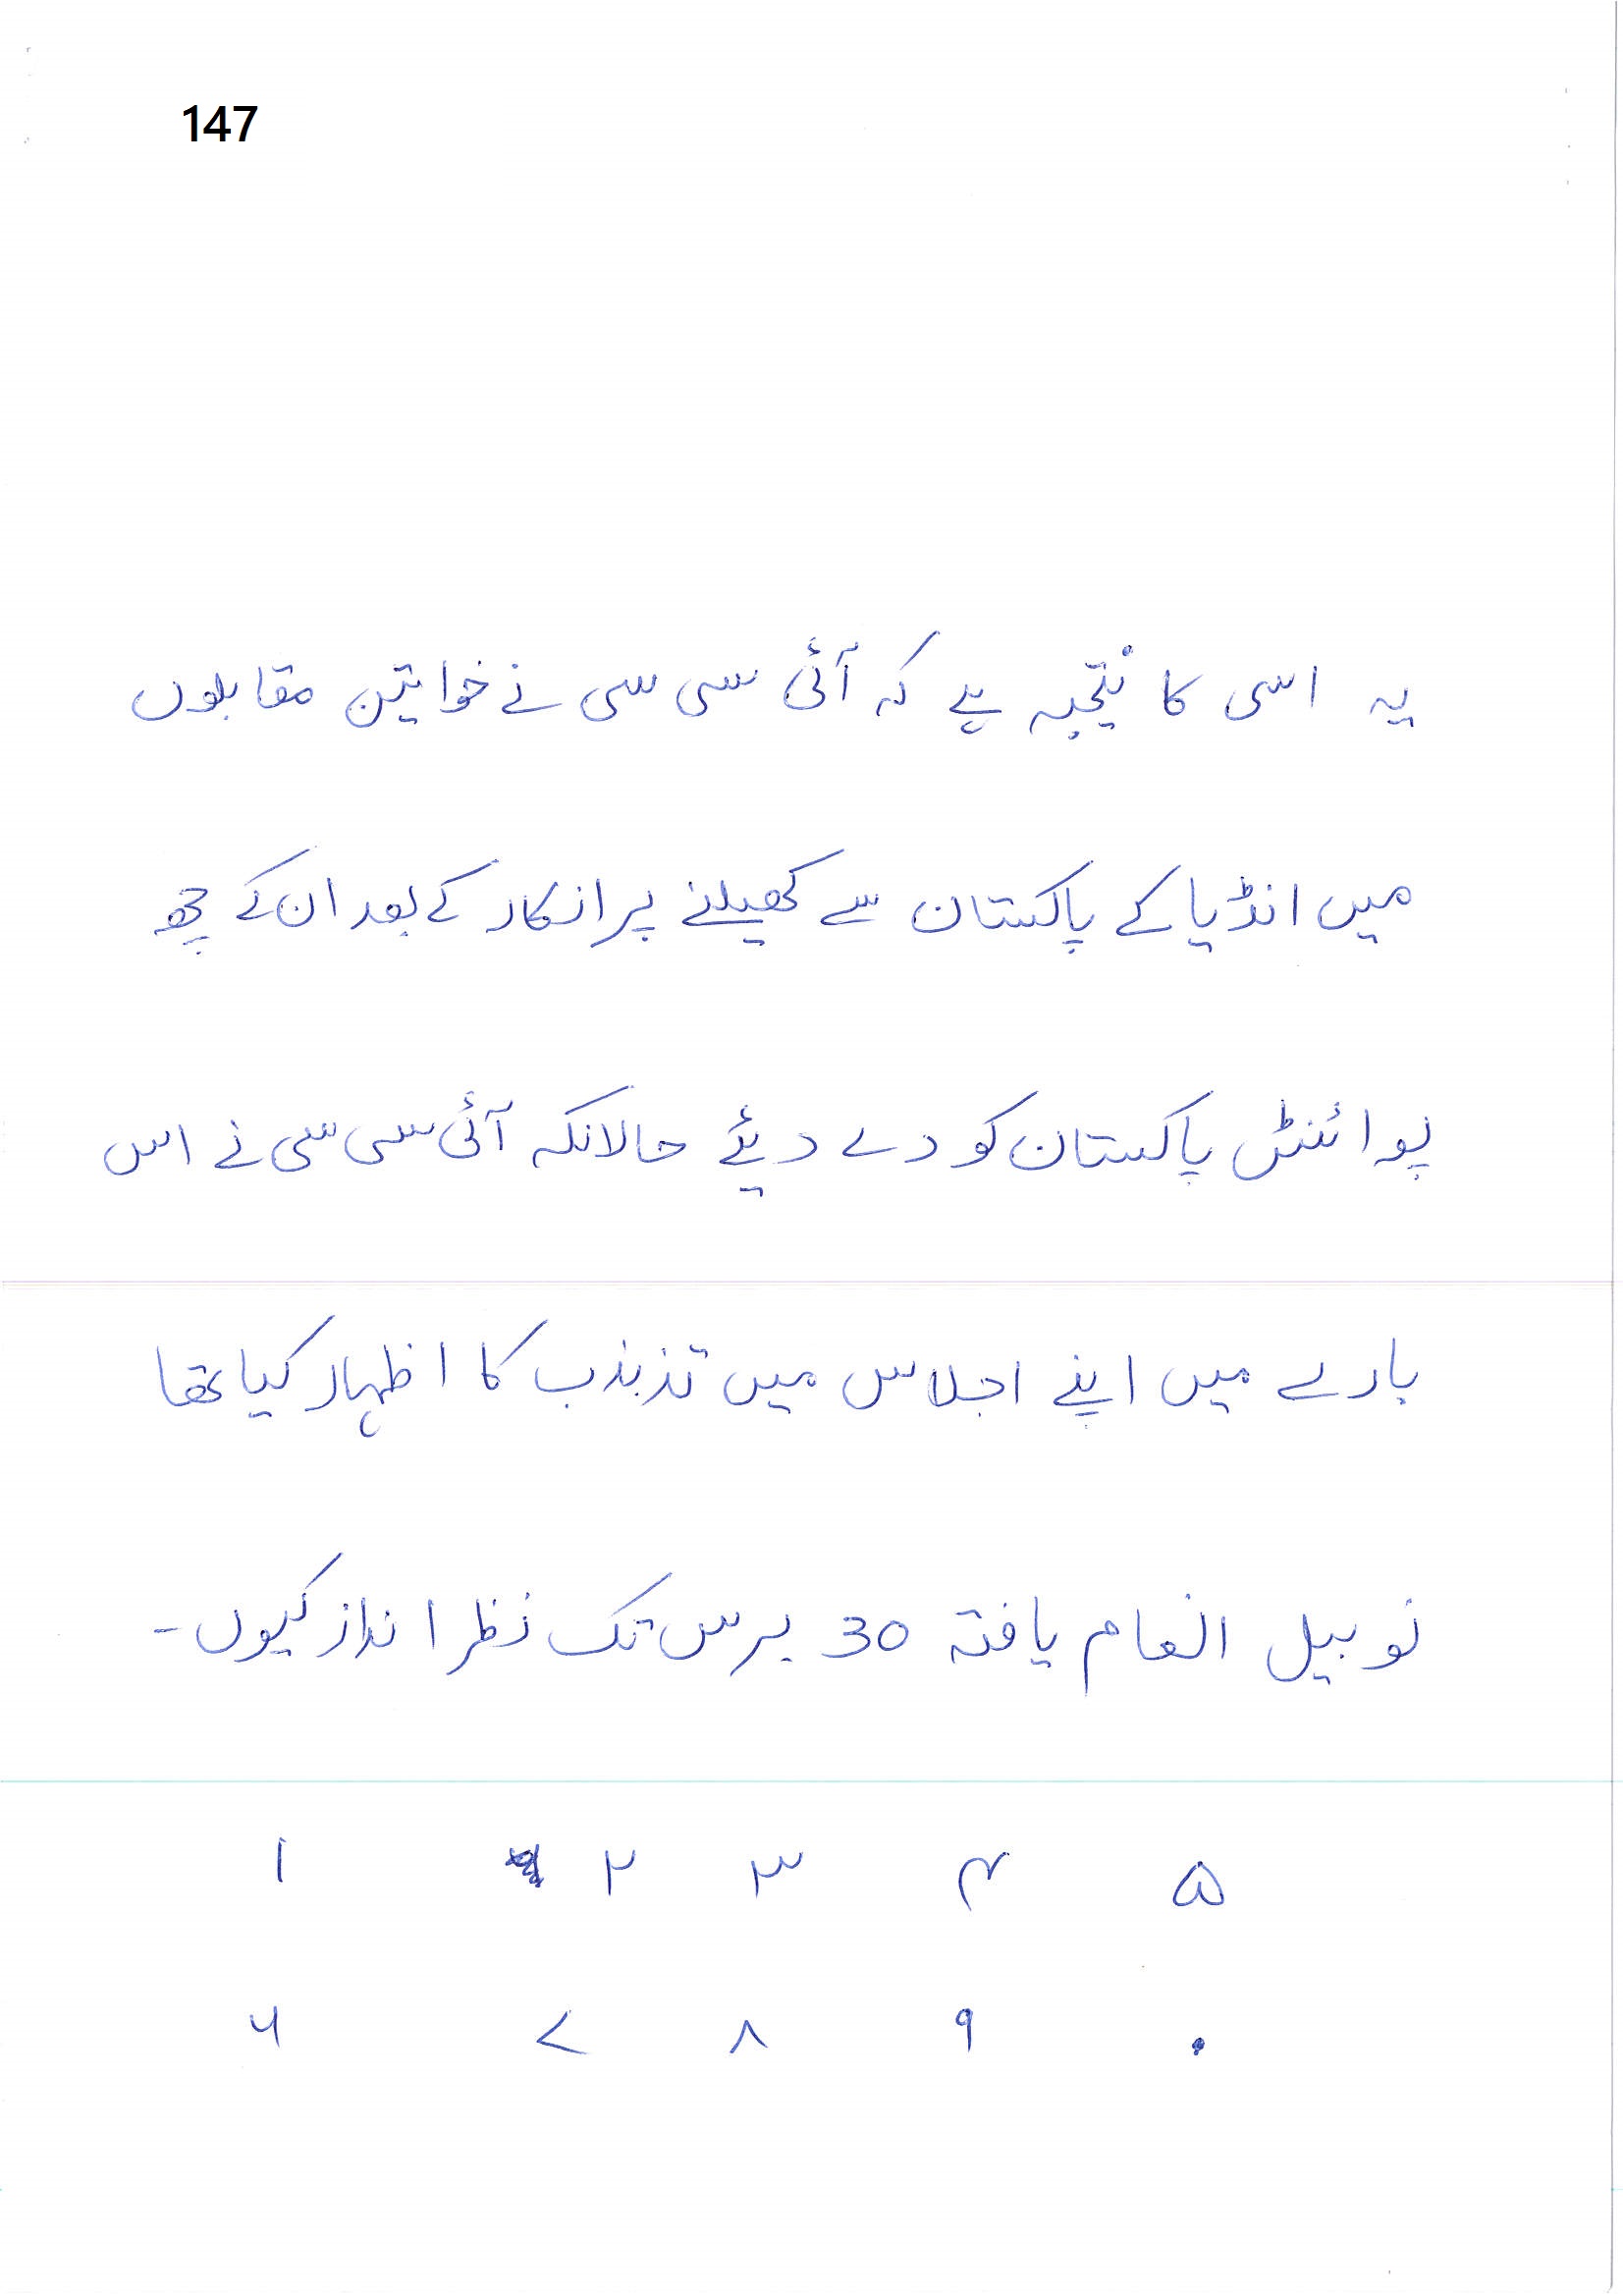 147
یہ اسی کا نتیجہ ہے کہ آئی سی سی نے خواتین مقابلوں
میں انڈیا کے پاکستان سے کھیلنے پر انکار کے بعد ان کے چھ
پوائنٹس پاکستان کو دے دیئے حالانکہ آئی سی سی نے اس
بارے میں اپنے اجلاس میں تذبذب کا اظہار کیا تھا
نوبیل انعام یافتہ 30 برس تک نظر انداز کیوں۔
۱ ۲ ۳ ۴ ۵
۶ ۷ ۸ ۹ ۰